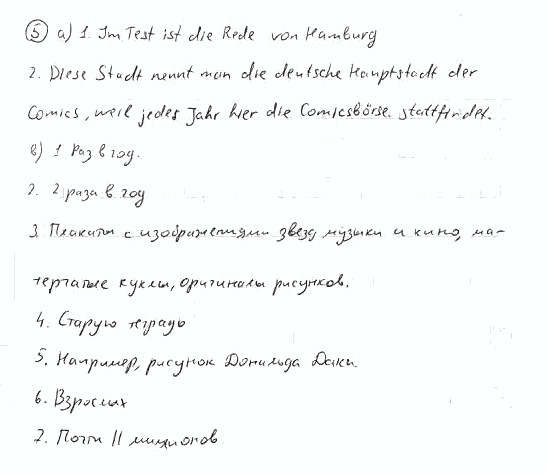 ⑤ a) 1. Im Test ist die Rede von Hamburg
2. Diese Stadt nennt man die deutsche Hauptstadt der
Comics, weil jedes Jahr hier die Comicsbörse stattfindet.
в) 1 Раз в год.
2. 2 раза в год
3. Плакаты с изображениями звезд музыки и кино, ма-
териалые куклы, оригиналы рисунков.
4. Старую тетрадь
5. Например, рисунок Дональда Дака.
6. Взрослых
7. Почти 11 миллионов